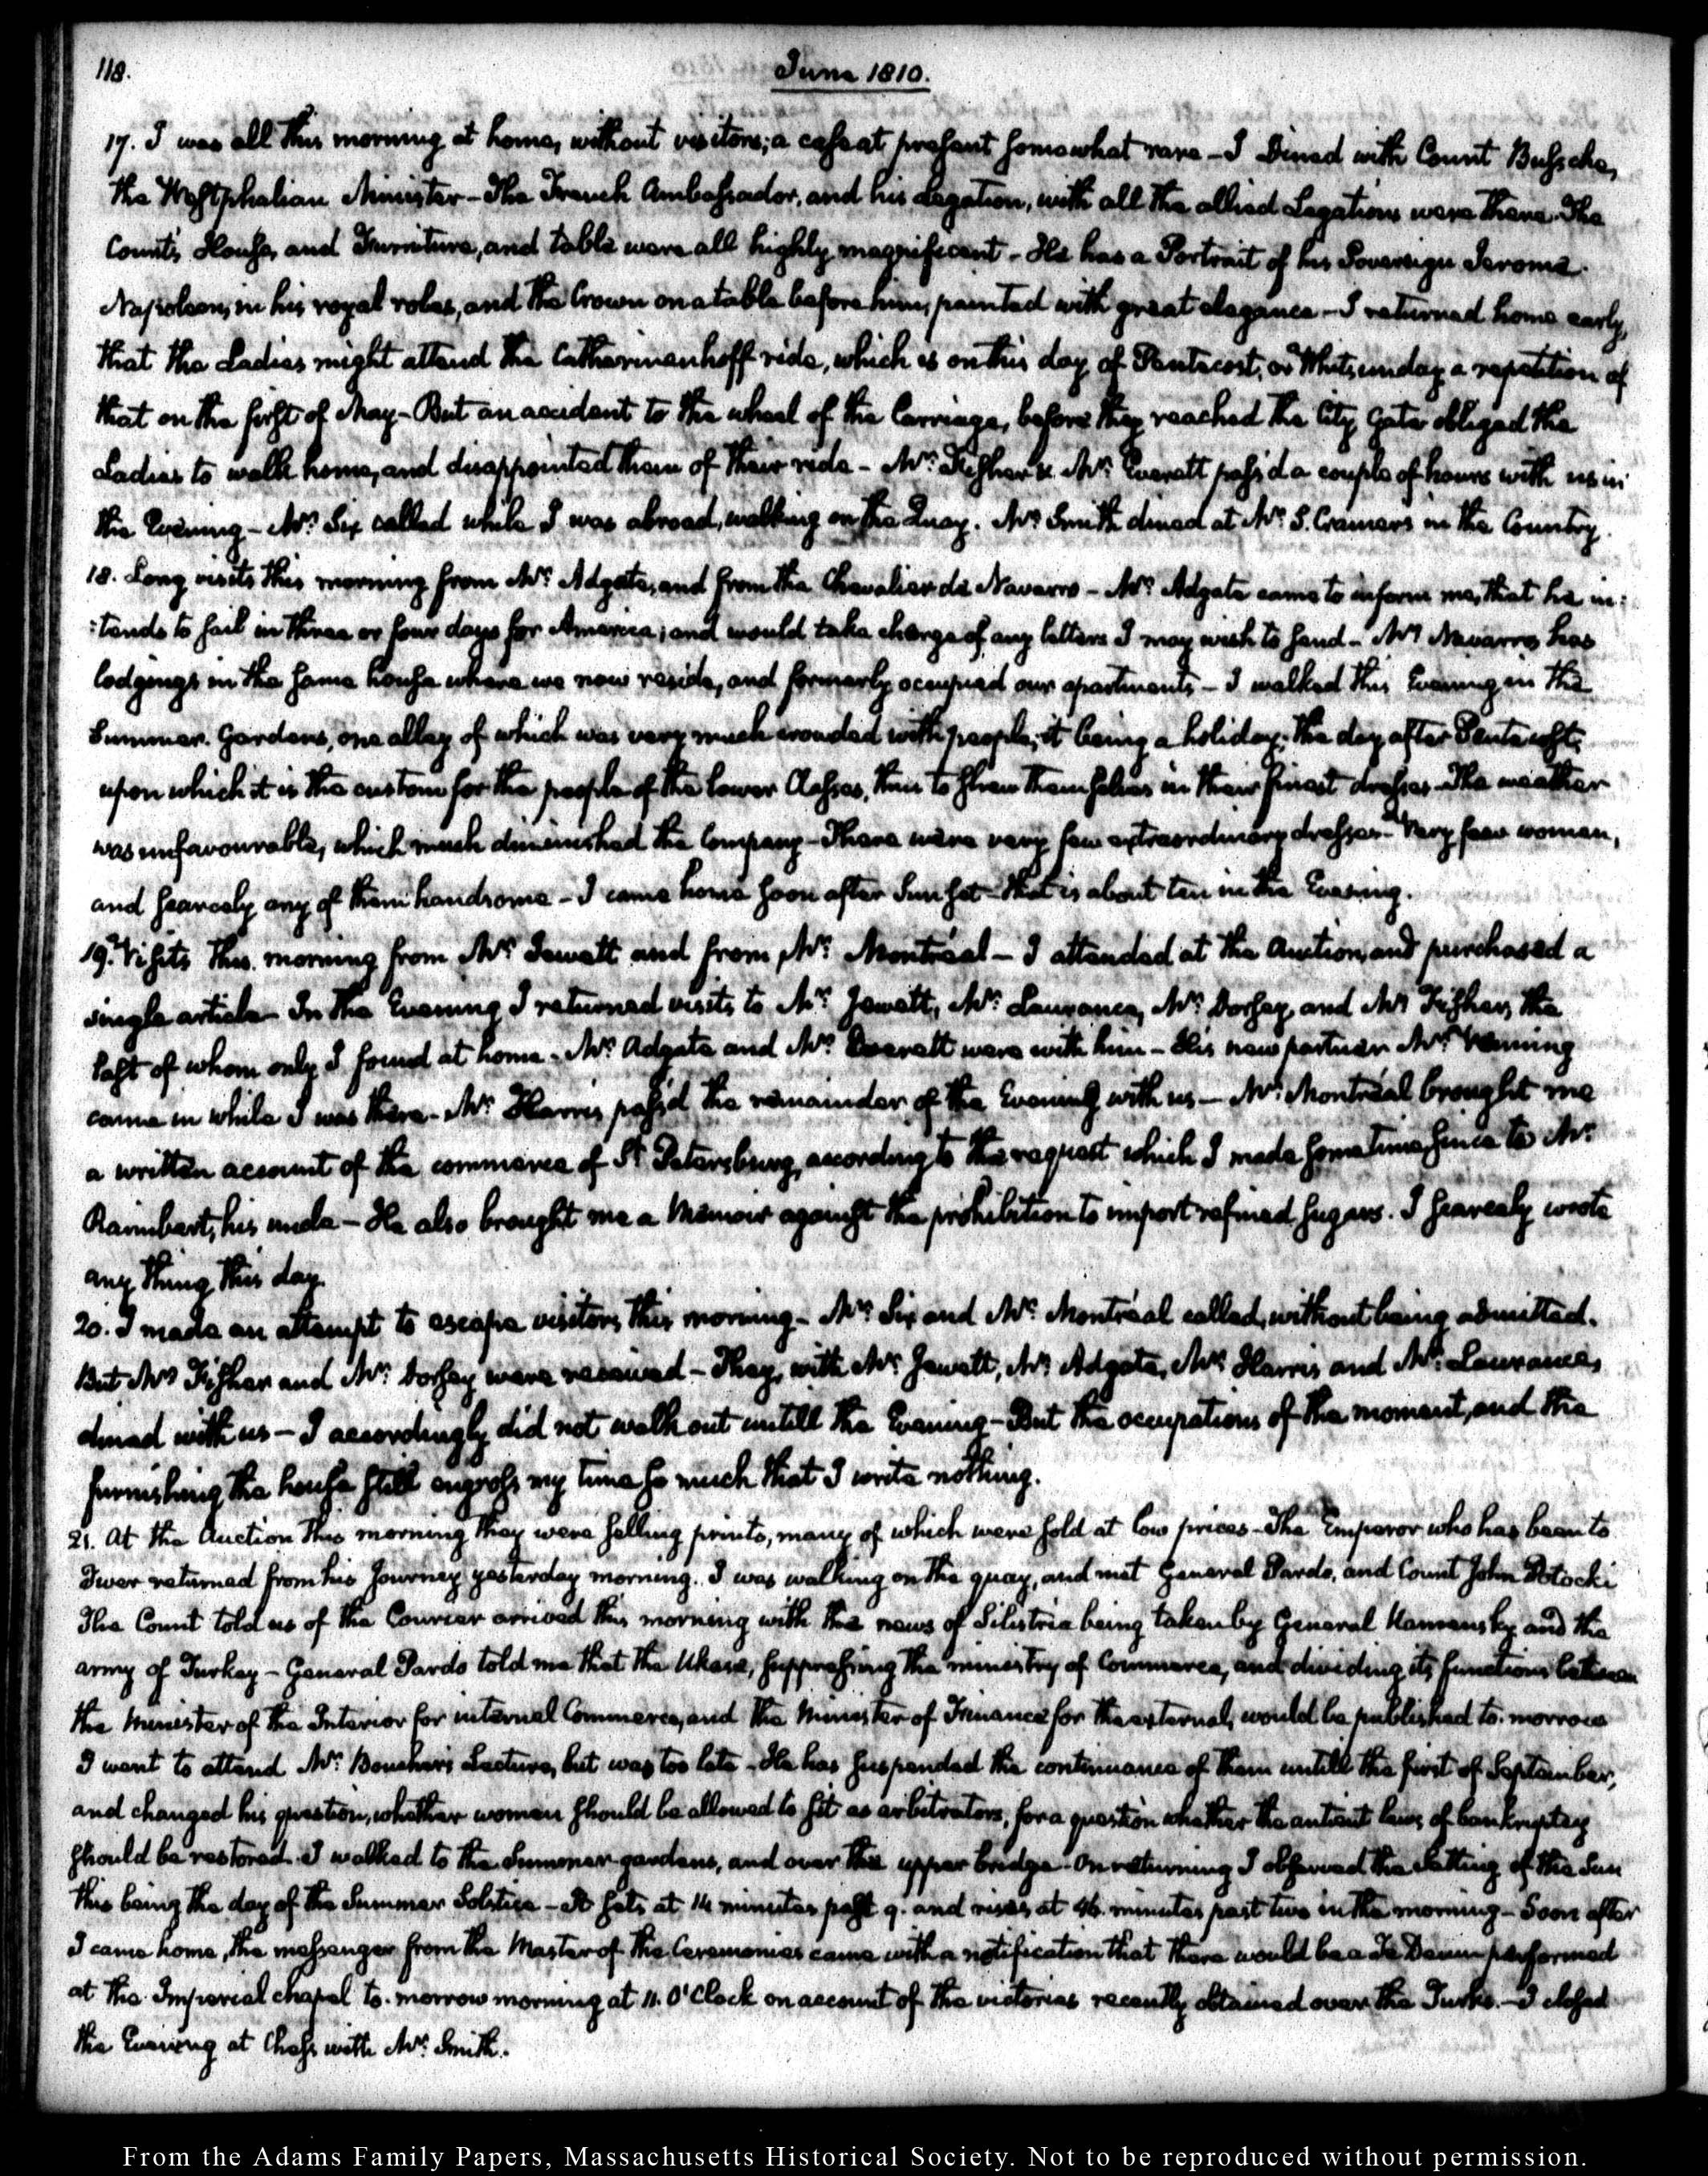 118.
June 1810.
17. I was all this morning at home, without visitors; a case at present somewhat rare - I dined with Count Bussche,
the Westphalian Minister - The French Ambassador, and his Legation, with all the allied Legations were there. The
Count's House, and Furniture, and table were all highly magnificent - He has a Portrait of his Sovereign Jerome
Napoleon, in his royal robes, and the Crown on a table before him, painted with great elegance - I returned home early,
that the Ladies might attend the Catharinenhoff ride, which is on this day of Pentecost, or Whitsunday a repetition of
that on the first of May - But an accident to the wheel of the Carriage, before they reached the City Gate obliged the
Ladies to walk home, and disappointed them of their ride - Mr. Fisher & Mr. Everett pass'd a couple of hours with us in
the Evening - Mr. Six called while I was abroad, walking on the Quay. Mr. Smith dined at Mr. S. Cramer's in the Country.
18. Long visits this morning from Mr. Adgate, and from the Chevalier de Navarro - Mr. Adgate came to inform me, that he in:
:tends to sail in three or four days for America; and would take charge of any letters I may wish to send - Mr. Navarro has
lodgings in the same house where we now reside, and formerly occupied our apartments - I walked this Evening in the
Summer Gardens, one alley of which was very much crouded with people; it being a holiday; the day after Pentecost,
upon which it is the custom for the people of the lower Classes, thus to shew themselves in their finest dresses. The weather
was unfavourable, which much diminished the Company - There were very few extraordinary dresses - Very few women,
and scarcely any of them handsome - I came home soon after Sun set - that is about ten in the Evening.
19. Visits this morning from Mr. Jewett and from Mr. Montréal - I attended at the Auction, and purchased a
single article - In the Evening I returned visits to Mr. Jewett, Mr. Lawrance, Mr. Dorsey, and Mr. Fisher, the
last of whom only I found at home - Mr. Adgate and Mr. Everett were with him - His new partner Mr.
came in while I was there - Mr. Harris pass'd the remainder of the Evening with us - Mr. Montréal brought me
a written account of the commerce of St. Petersburg, according to the request which I made sometime since to Mr.
Raimbert, his uncle - He also brought me a Memoir against the prohibition to import refined sugars. I scarcely wrote
any thing this day.
20. I made an attempt to escape visitors this morning - Mr. Six and Mr. Montréal called, without being admitted.
But Mr. Fisher and Mr. Dorsey were received - They, with Mr. Jewett, Mr. Adgate, Mr. Harris and Mr. Lawrance,
dined with us - I accordingly did not walk out untill the Evening - But the occupations of the moment, and the
furnishing the house still engross my time so much that I write nothing.
21. At the Auction this morning they were selling prints, many of which were sold at low prices - The Emperor who has been to
Twer returned from his Journey yesterday morning. I was walking on the quay, and met General Pardo, and Count John Potocki
The Count told us of the Courier arrived this morning with the news of Silistria being taken by General Kamensky and the
army of Turkey - General Pardo told me that the Ukase, suppressing the ministry of Commerce, and dividing its functions between
the Minister of the Interior for internal Commerce, and the Minister of Finance for the external, would be published to-morrow
I went to attend Mr. Boucher's Lecture, but was too late - He has suspended the continuance of them untill the first of September,
and changed his question, whether women should be allowed to sit as arbitrators, for a question whether the antient laws of bankruptcy
should be restored. I walked to the Summer gardens, and over the upper bridge. On returning I observed the setting of the Sun
this being the day of the Summer Solstice - It sets at 14 minutes past 9. and rises at 46. minutes past two in the morning - Soon after
I came home, the messenger from the Master of the Ceremonies came with a notification that there would be a Te Deum performed
at the Imperial chapel to-morrow morning at 11. O'Clock on account of the victories recently obtained over the Turks. - I closed
the Evening at Chess with Mr. Smith.
From the Adams Family Papers, Massachusetts Historical Society. Not to be reproduced without permission.